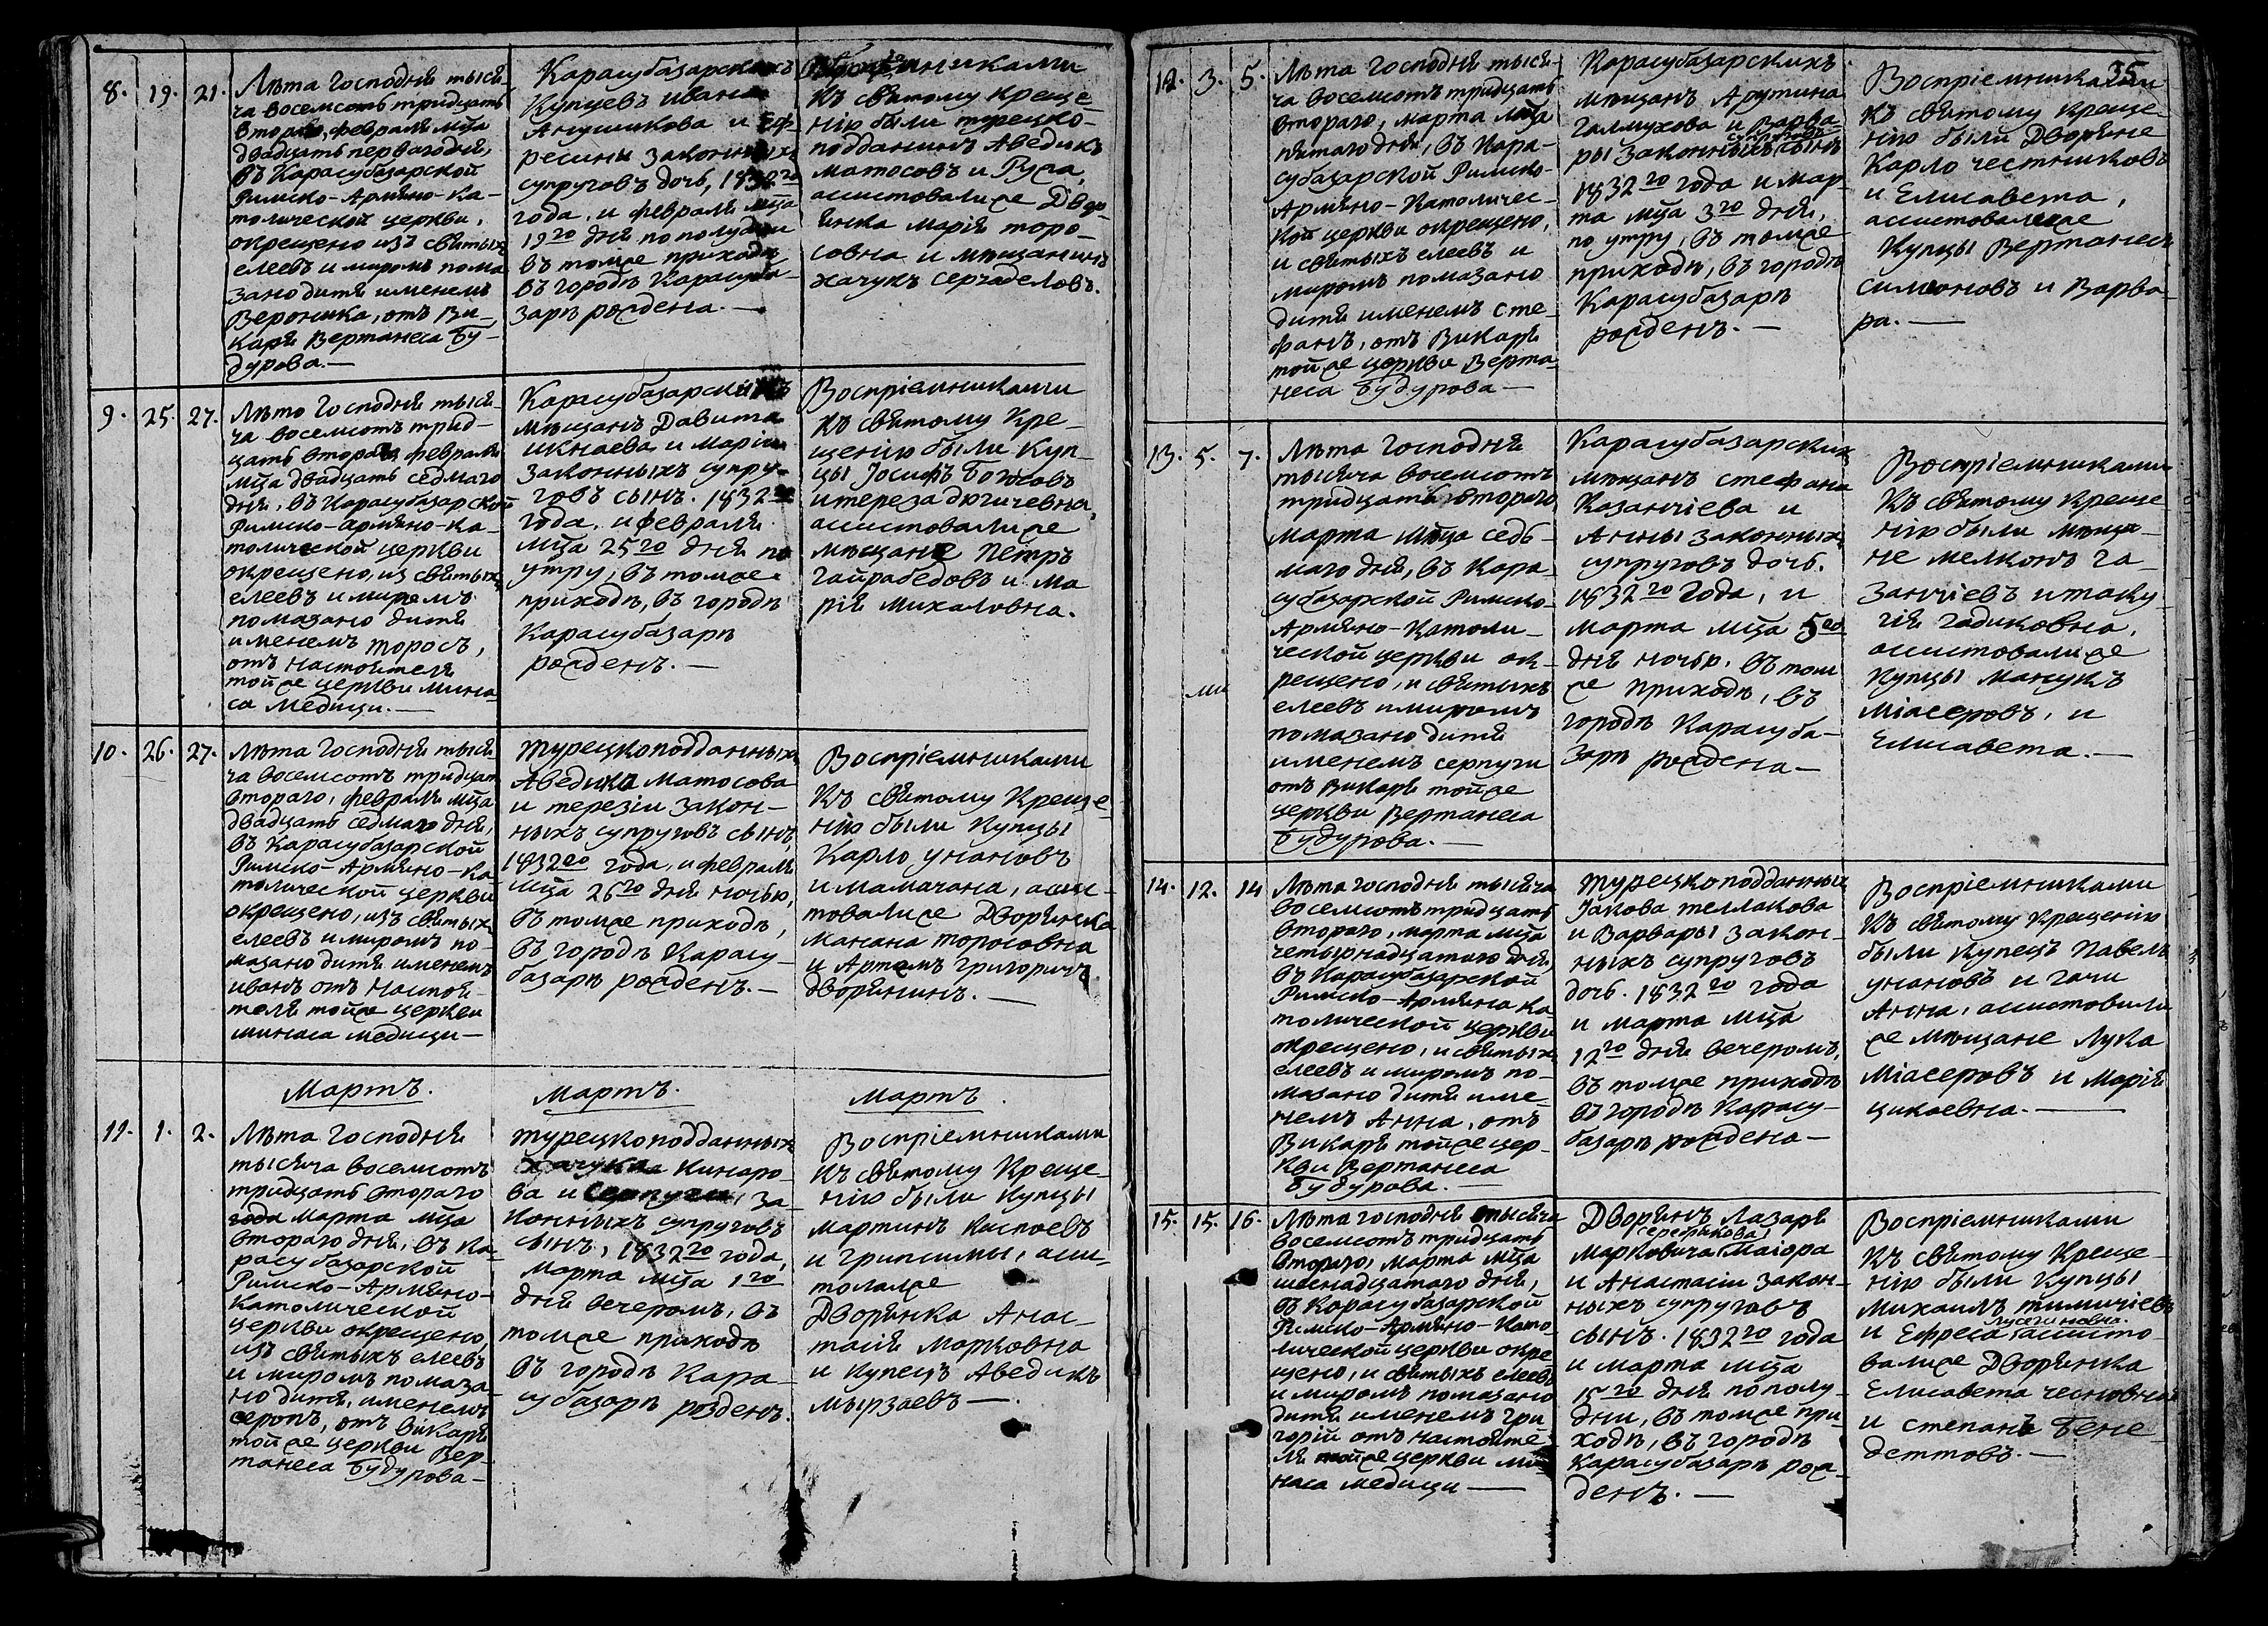 8. 19. 21.
Лѣта Господня тыся-
ча восемсотъ тридцать
втораго, февраля мца
двадцать перваго дня,
въ Карасубазарской
Римско-Армяно-Ка-
толической церкви,
окрещено изъ святыхъ
елеевъ и миромъ пома
зано дитя именемъ
Вероника, отъ Ви-
каря Вертанеса Бу-
дурова.—
Карасубазарскихъ
Купцевъ Ивана
Анушикова и Еф-
ресини законныхъ
супруговъ дочь, 1832го
года, и февраля мца
19го дня по полудни
въ томже приходѣ
въ городѣ Карасуба-
зарѣ рождена.—
Воспріемниками
къ святому креще-
нію были турецко-
подданинъ Аведикъ
Матосовъ и Руса,
асистовалиже Двор-
янка Марія Торо-
совна и мѣщанинъ
Хачукъ Серчаделовъ.
9. 25. 27.
Лѣто Господня тыся-
ча восемсотъ трид-
цать втораго февраля
мца двадцать седмаго
дня, въ Карасубазарской
Римско-Армяно-Ка-
толической церкви
окрещено, из святыхъ
елеевъ и миромъ
помазано дитя
именемъ Торосъ,
отъ настоятеля
тойже церкви Мина-
са Медици.—
Карасубазарскихъ
мѣщанъ Давита
Икнаева и Маріи
законныхъ супру-
говъ сынъ. 1832го
года. и февраля
мца 25го дня по
утру, въ томже
приходѣ, въ городѣ
Карасубазарѣ
рожденъ.—
Воспріемниками
къ святому кре-
щенію были Куп-
цы Іосифъ Богосовъ
и Тереза Дюгичевна,
асистовалиже
мѣщане Пётръ
Гайрабедовъ и Ма
рія Михаловна.
10. 26. 27.
Лѣта Господня тыся
ча восемсотъ тридцат
втораго, февраля мца
двадцать седмаго дня,
въ Карасубазарской
Римско-Армяно-Ка
толической церкви
окрещено, изъ святыхъ
елеевъ и миромъ по-
мазано дитя именемъ
Иванъ отъ настоя-
теля тойже церкви
Минаса Медици—
Турецкоподданныхъ
Аведика Матосова
и Терезіи закон-
ныхъ супруговъ сынъ,
1832го года, и февраля
мца 26го дня ночью,
въ томже приходѣ,
въ городѣ Карасу-
базарѣ рожденъ.—
Воспріемниками
къ святому креще-
нію были Купцы
Карло Унановъ
и Мамачана, асис-
товалиже Дворянка
Манана Торосовна
и Артемъ Григоричъ
дворянинъ.—
Мартъ. Мартъ. Мартъ.
11. 1. 2.
Лѣта Господня
тысяча восемсотъ
тридцать втораго
года марта мца
втораго дня, въ Ка-
расубазарской
Римско-Армяно-
Католической
церкви окрещено,
изъ святыхъ елеевъ
и миромъ помаза-
но дитя, именемъ
Серопъ, отъ викаря
тойже церкви Вер-
танеса Будурова—
Турецкоподданныхъ
Хачука Кинаро-
ва и Серпуги, за-
конныхъ супруговъ
сынъ, 1832го года,
марта мца 1го
дня вечеромъ, въ
томже приходѣ
въ городѣ Кара-
субазарѣ розденъ.
Воспріемниками
къ святому креще-
нію были Купцы
Мартинъ Каспаевъ
и Грипсимы, аси-
толалже
Дворянка Анас-
тасія Марковна
и Купецъ Аведикъ
Мырзаевъ—.
35
12. 3. 5.
Лѣта Господня тыся-
ча восемсотъ тридцать
втораго, марта мца
пятаго дня, въ Кара-
субазарской Римско-
Армяно-Католичес-
кой церкви окрещено,
и святыхъ елеевъ и
миромъ помазано
дитя именемъ Сте-
фанъ, отъ Викаря
тойже церкви Верта-
неса Будурова—
Карасубазарскихъ
мѣщанъ Арутина
Галмухова и Варва-
ры законныхъ супруговъ сынъ
1832го года и мар-
та мца 3го дня,
по утру, въ томже
приходѣ, въ городѣ
Карасубазарѣ
рожденъ.—
Воспріемниками
къ святому креще-
нію были Дворяне
Карло Честниковъ
и Елисавета,
асистовалиже
Купцы Вертанесъ
Симоновъ и Варва-
ра.—
13. 5. 7.
Лѣта Господня
тысяча восемсотъ
тридцать втораго
марта мца седь-
маго дня, въ Кара-
субазарской Римско-
Армяно-Католи-
ческой церкви ок-
рещено, и святыхъ
елеевъ и миромъ
помазано дитя
именемъ Серпуги
отъ Викаря тойже
церкви Вертанеса
Будурова.—
Карасубазарскихъ
мѣщанъ Стефана
Казанчіева и
Анны законныхъ
супруговъ дочь.
1832го года, и
марта мца 5го
дня ночью. въ том
же приходѣ, въ
городѣ Карасуба-
зарѣ рождена—
Воспріемниками
къ святому креще
нію были мѣща-
не Мелконъ Га-
занчіевъ и Таку-
гія Гадиковна,
асистовалиже
Купцы Манукъ
Міасеровъ, и
Елисавета.—
14. 12. 14
Лѣта Господня тысяча
восемсотъ тридцать
втораго, марта мца
четырнадцатаго дня,
въ Карасубазарской
Римско-Армяна Ка-
толической церкви
окрещено, и святыхъ
елеевъ и миромъ по-
мазано дитя име-
немъ Анна, отъ
Викаря тойже цер-
кви Вертанеса
Будурова.—
Турецкоподданныхъ
Іакова Теллакова
и Варвары закон-
ныхъ супруговъ
дочь. 1832го года
и марта мца
12го дня вечеромъ,
въ томже приходѣ
въ городѣ Карасу-
базарѣ рождена—
Воспріемниками
къ святому крещенію
были Купецъ Павелъ
Унановъ и Гачи
Анна, асистовали
же мѣщане Лука
Міасеровъ и Марія
Цикаевна.—
15. 15. 16.
Лѣта Господня тысяча
восемсотъ тридцать
втораго, марта мца
шеснадцатаго дня,
въ Карасубазарской
Римско-Армяно-Като-
лической церкви окре-
щено, и святыхъ елеевъ
и миромъ помазано
дитя именемъ Гри
горій отъ настояте-
ля тойже церкви Ми-
наса Медици—
Дворянъ Лазаря
Марковича Серебякова Маіора
и Анастасіи закон-
ныхъ супруговъ
сынъ. 1832го года
и марта мца
15го дня по полу-
дни, въ томже при-
ходѣ, въ городѣ
Карасубазарѣ рож-
денъ.—
Воспріемниками
къ святому креще-
нію были Купцы
Михаилъ Тиличіевъ
и Ефреса асисто-
валиже Дворянка
Елисавета Чесновная
и Степанъ Бене-
деттовъ.—